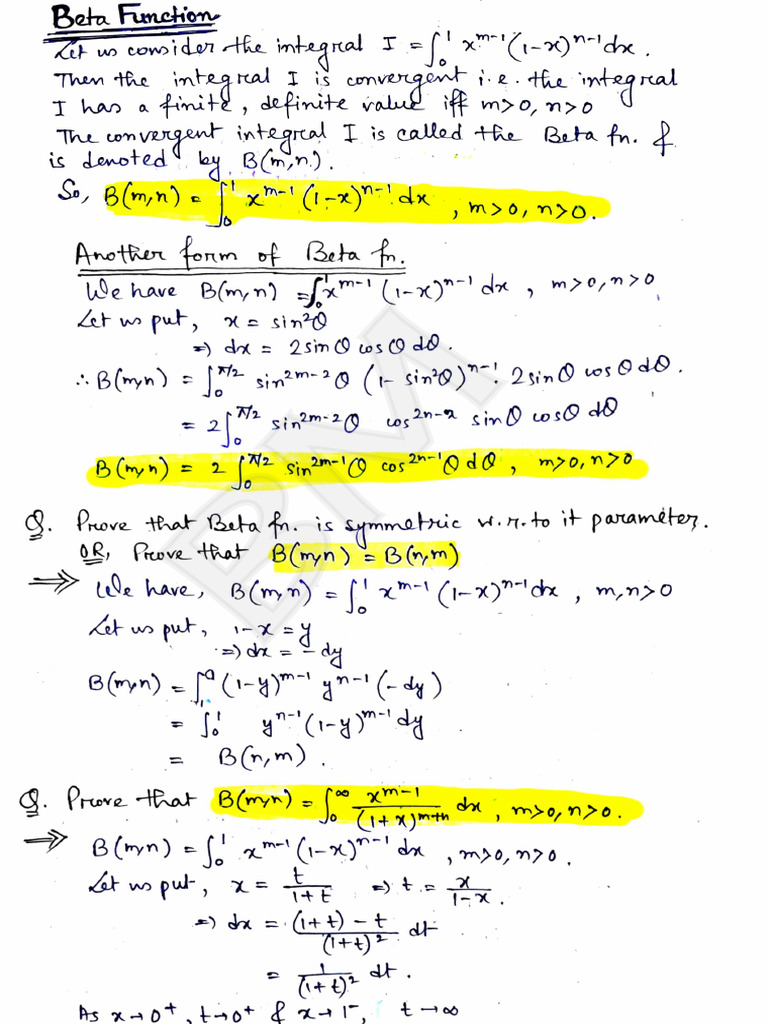 Beta Function
Let us consider the integral I = ∫₀¹ x^{m-1} (1-x)^{n-1} dx.
Then the integral I is convergent i.e. the integral
I has a finite, definite value iff m>0, n>0
The convergent integral I is called the Beta fn. &
is denoted by B(m,n).
So, B(m,n) = ∫₀¹ x^{m-1} (1-x)^{n-1} dx , m>0, n>0.
Another form of Beta fn.
We have B(m,n) = ∫₀¹ x^{m-1} (1-x)^{n-1} dx , m>0, n>0
Let us put, x = sin²θ
⇒ dx = 2 sinθ cosθ dθ.
∴ B(m,n) = ∫₀^{π/2} sin^{2m-2}θ (1- sin²θ)^{n-1}. 2 sinθ cosθ dθ.
= 2∫₀^{π/2} sin^{2m-2}θ cos^{2n-2} sinθ cosθ dθ
B(m,n) = 2 ∫₀^{π/2} sin^{2m-1}θ cos^{2n-1}θ dθ , m>0, n>0
BM
Q. Prove that Beta fn. is symmetric w.r.to it parameter.
OR, Prove that B(m,n) = B(n,m)
⇒ We have, B(m,n) = ∫₀¹ x^{m-1} (1-x)^{n-1} dx , m,n>0
Let us put, 1-x = y
⇒ dx = -dy
B(m,n) = ∫₁⁰ (1-y)^{m-1} y^{n-1} (-dy)
= ∫₀¹ y^{n-1} (1-y)^{m-1} dy
= B(n,m).
Q. Prove that B(m,n) = ∫₀^∞ x^{m-1}/(1+x)^{m+n} dx , m>0, n>0.
⇒ B(m,n) = ∫₀¹ x^{m-1} (1-x)^{n-1} dx , m>0, n>0.
Let us put, x = t/(1+t) ⇒ t = x/(1-x).
⇒ dx = ((1+t) - t)/(1+t)² dt
= 1/(1+t)² dt.
As x→0⁺, t→0⁺ & x→1⁻, t→∞